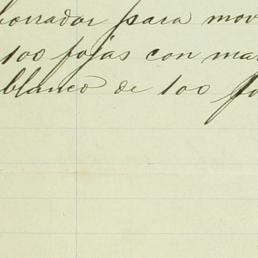 borrador para mov
100 fojas con mar
blanco de 100 fo